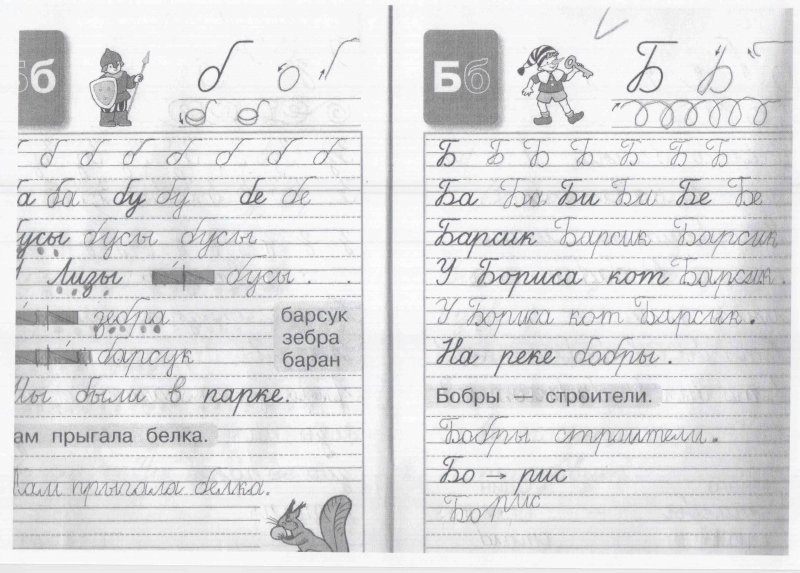 б
б
б б б б б б б
ба ба бу бу бе бе
бусы бусы бусы
Лизы бусы.
зебра
барсук
барсук
зебра
баран
Мы были в парке.
ам прыгала белка.
Там прыгала белка.
Бб
Б
Б Б Б Б Б Б Б
Ба Ба Би Би Бе Бе
Барсик Барсик Барсик
У Бориса кот Барсик.
У Бориса кот Барсик.
На реке бобры.
Бобры — строители.
Бобры строители.
Бо → рис
Борис